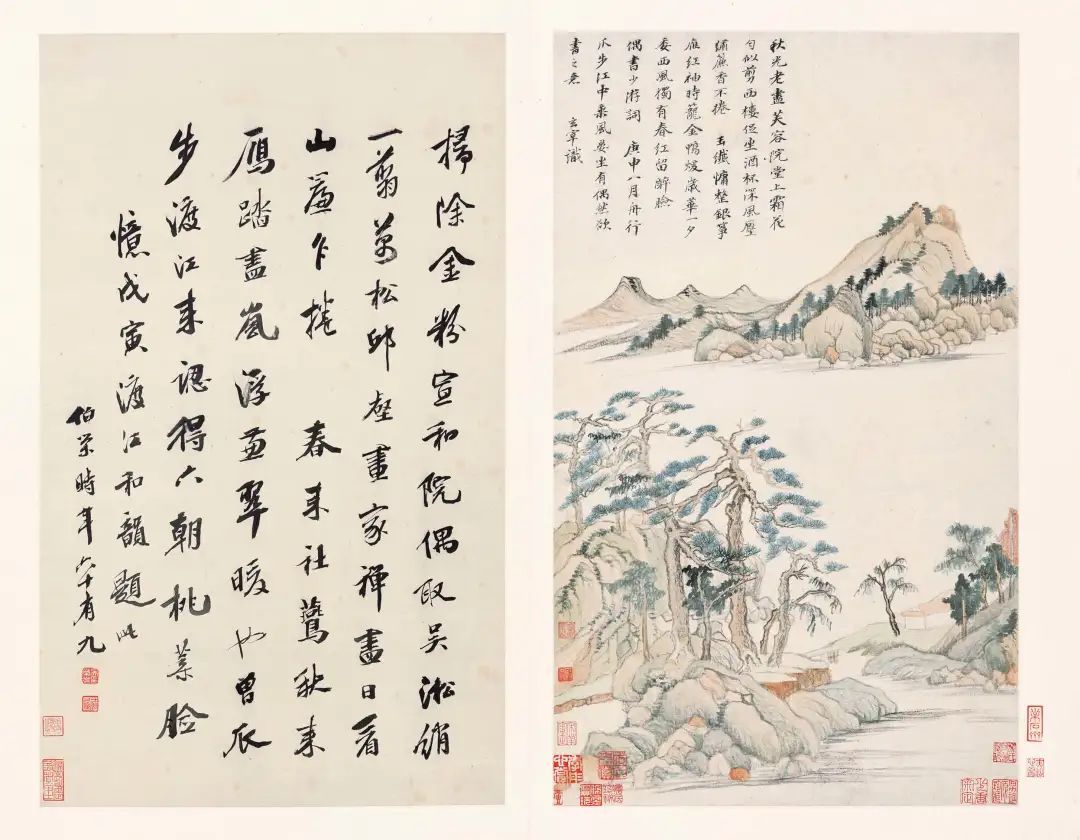 秋光老盡芙容院堂上霜花
勻似剪西樓促坐酒杯深風壓
繡簾香不捲 玉纖慵整銀箏
雁紅袖時籠金鴨煖歲華一夕
委西風獨有春紅留醉臉
偶書少游詞 庚申八月舟行
瓜步江中乘風晏坐有偶然欲
書之意 玄宰識
掃除金粉宣和院偶取吳淞綃
一翦萬松邨壑畫家禪盡日看
山簾乍捲 春來社鷰秋來
鴈踏盡嵐浮翠暖也曾瓜
步渡江來認得六朝桃葉臉
憶戊寅渡江和韻題此
伯榮時年六十有九